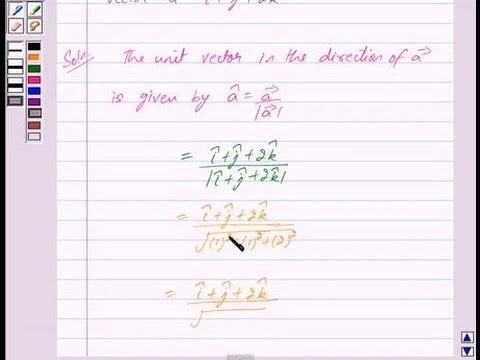 vector a⃗ î+ĵ+2k̂
Soln. The unit vector in the direction of a⃗
is given by â = a⃗/|a⃗|
= î+ĵ+2k̂/|î+ĵ+2k̂|
= î+ĵ+2k̂/√(1)²+(1)²+(2)²
= î+ĵ+2k̂/√